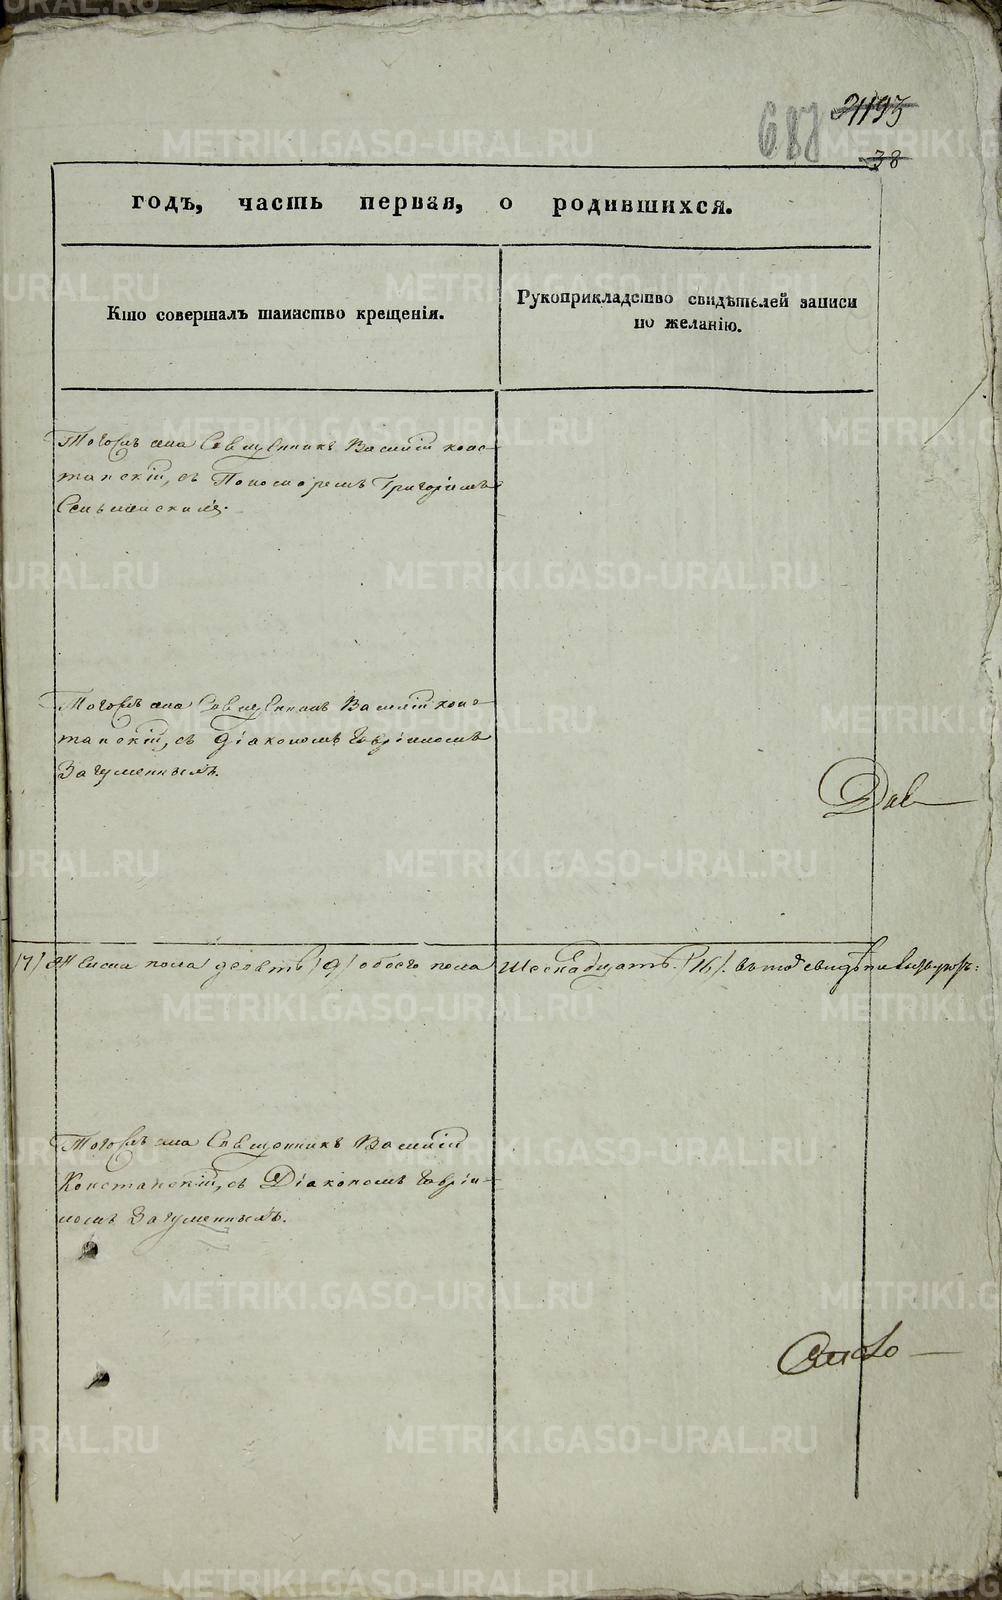 688 31193
38
годъ, часть первая, о родившихся.
Кто совершалъ таинство крещенія.
Рукоприкладство свидѣтелей записи
по желанію.
Тогожъ села Священникъ Василій Конс-
танскій, съ Пономаремъ Григоріемъ
Тогожъ села Священникъ Василій Конс-
танскій, съ Діакономъ Гавріиломъ
Загуменнымъ.
Дав
/7/ Женска пола девять /9/ обоего пола шеснадцать /16/.
Тогожъ села Священникъ Василій
Констанскій, съ Діакономъ Гаврі-
иломъ Загуменнымъ.
METRIKI.GASO-URAL.RU